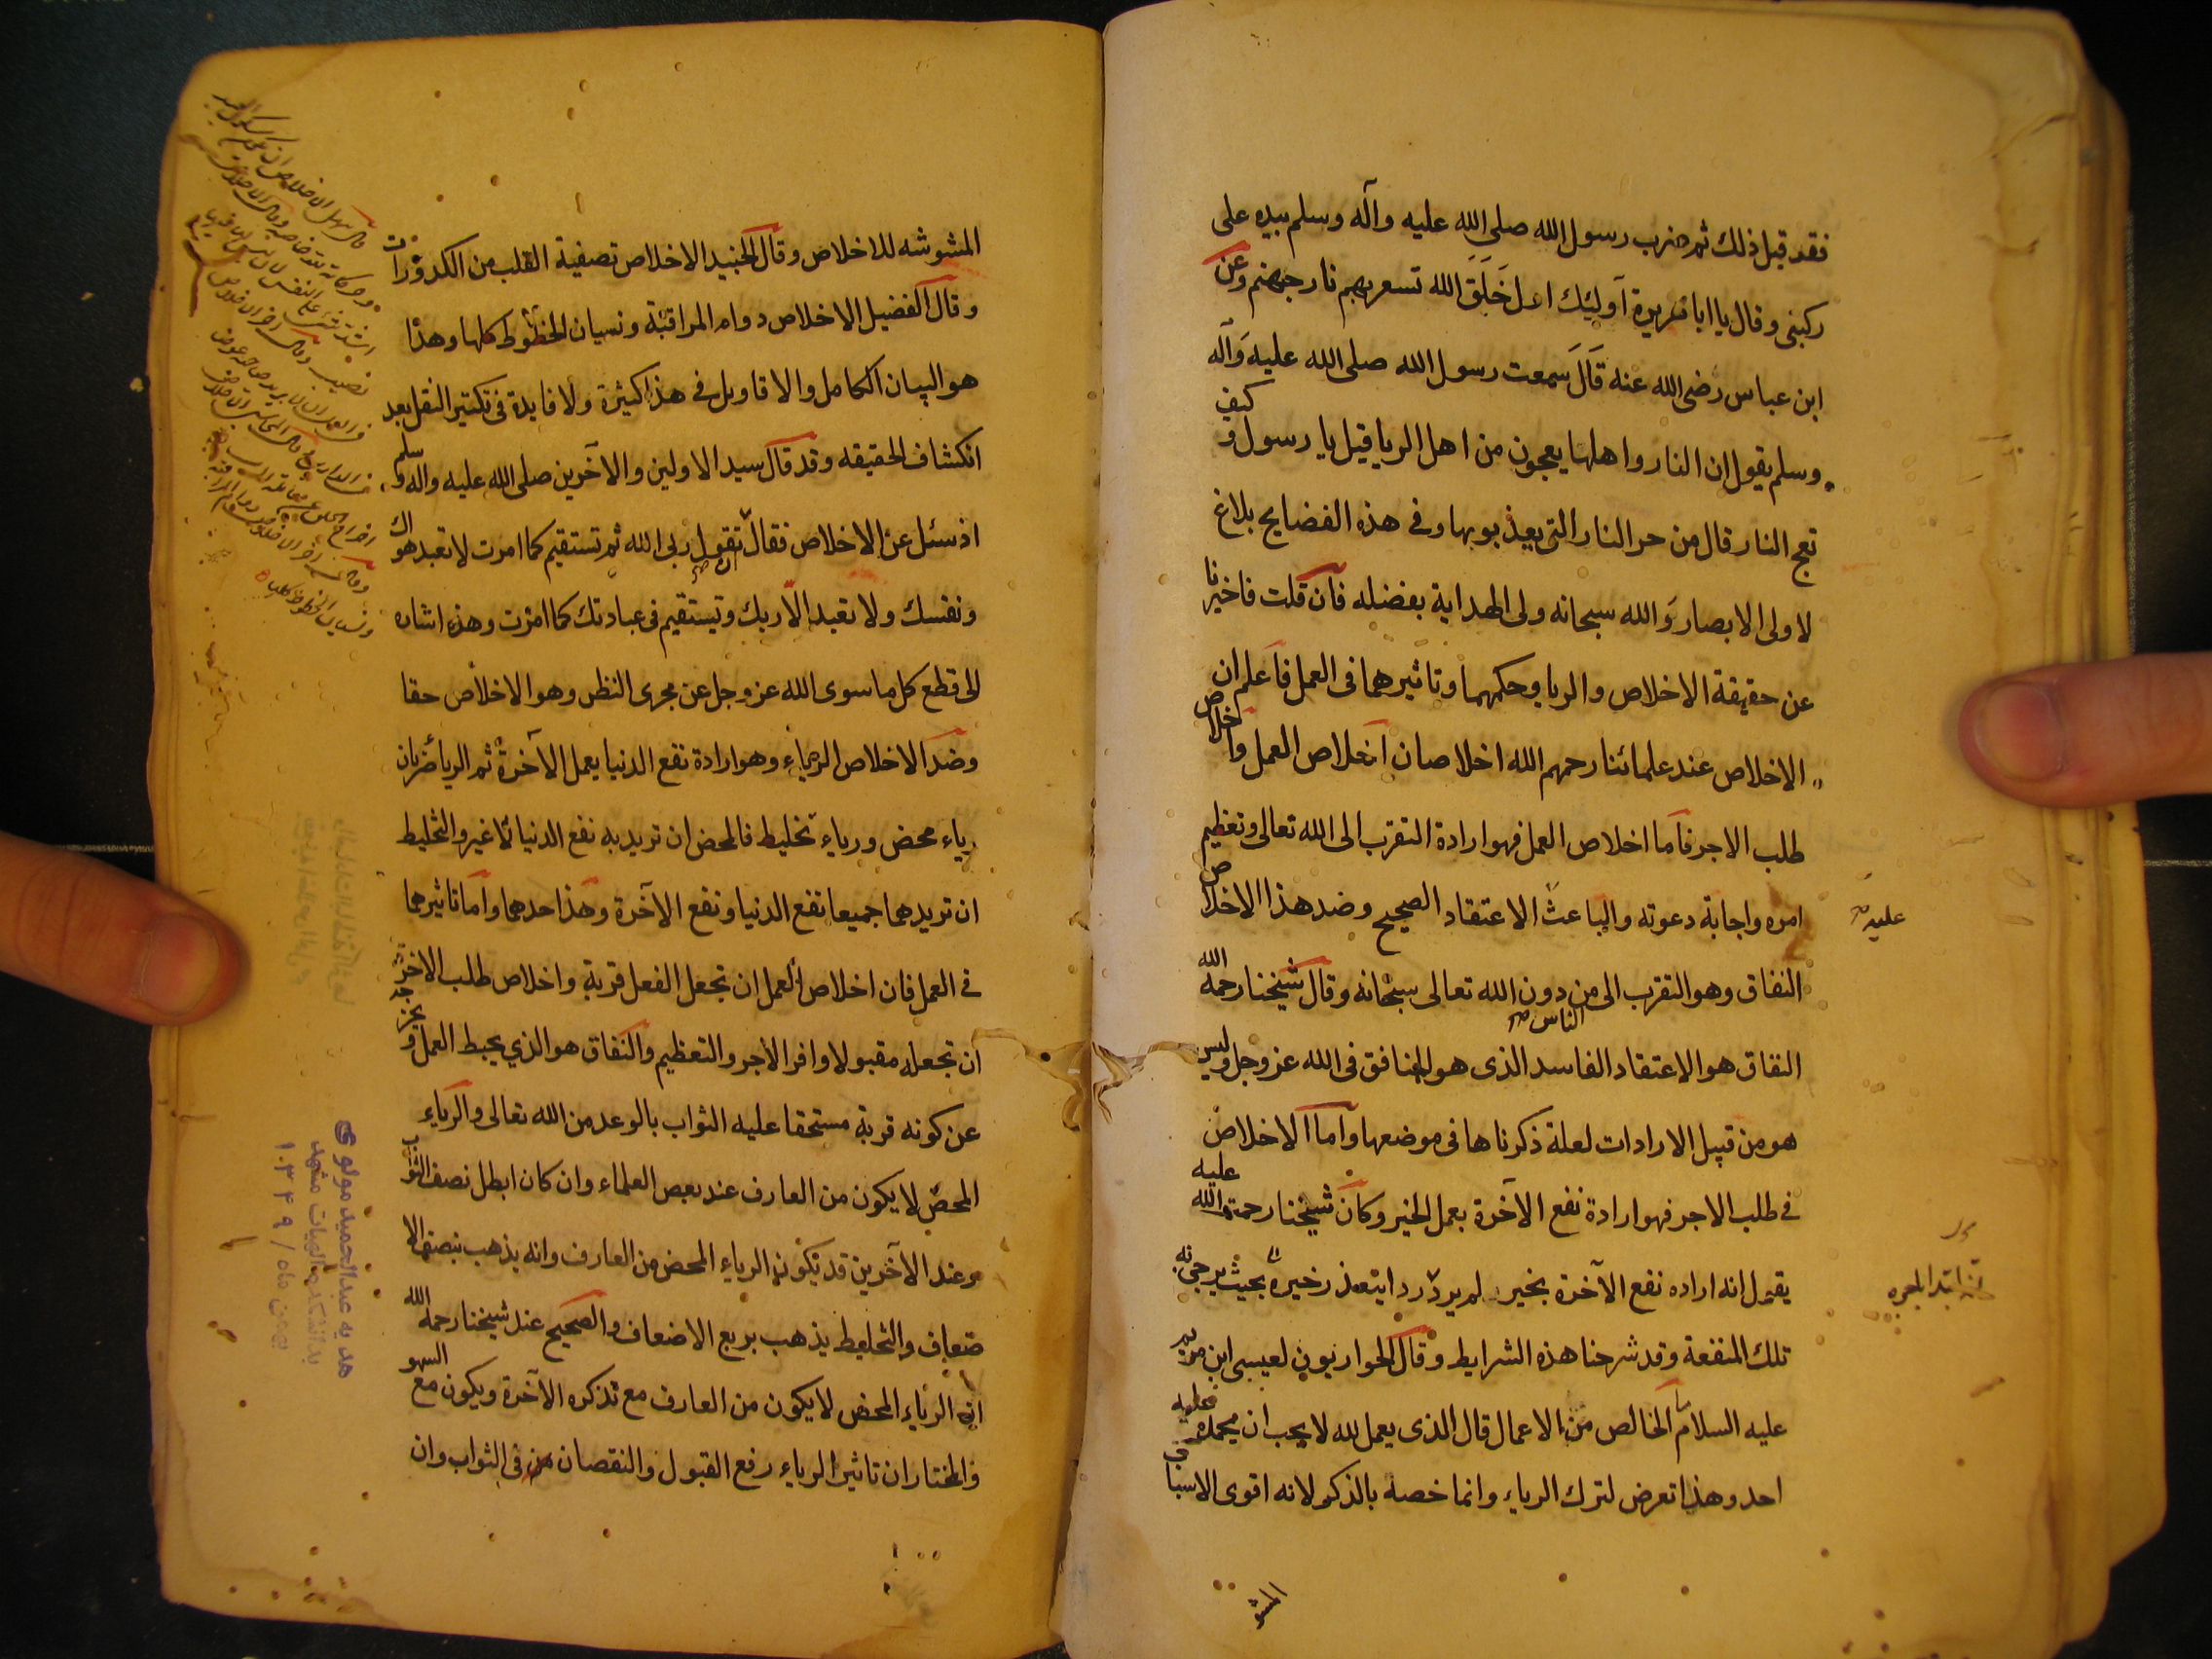 فقد قيل ذلك ثم ضرب رسول الله صلى الله عليه وآله وسلم بيده على
ركبتى وقال يا ابا هريرة اوليك اول خلق الله تسعر بهم نار جهنم وعن
ابن عباس رضى الله عنه قال سمعت رسول الله صلى الله عليه وآله
وسلم يقول ان النار واهلها يعجون من اهل الريا قيل يا رسول وكيف
تعج النار قال من حر النار التى يعذبو بها وفى هذه الفضايح بلاغ
لاولى الابصار والله سبحانه ولى الهداية بفضله فان قلت فاخبرنا
عن حقيقة الاخلاص والريا وحكمهما وتاثيرهما فى العمل فاعلم ان
الاخلاص عند علمائنا رحمهم الله اخلاصان اخلاص العمل واخلاص
طلب الاجر فاما اخلاص العمل فهو ارادة التقرب الى الله تعالى وتعظيم
امره واجابة دعوته والباعث الاعتقاد الصحيح وضد هذا الاخلاص
عليه
النفاق وهو التقرب الى من دون الله تعالى سبحانه وقال شيخنا رحمه الله
الناس
النفاق هو الاعتقاد الفاسد الذى هو المنافق فى الله عز وجل وليس
هو من قبيل الارادات لعلة ذكرناها فى موضعها واما الاخلاص
فى طلب الاجر فهو ارادة نفع الآخرة بعمل الخير وكان شيخنا رحمة الله عليه
يقول انه اراده نفع الآخرة بخير لم يرد ردا يتعذر خيره بحيث يرجى به
تلك المنفعة وقد شرحنا هذه الشرايط وقال الحواريون لعيسى ابن مريم
عليه السلام ما الخالص من الاعمال قال الذى يعمل لله لا يحب ان يحمده عليه
احد وهذا تعرض لترك الرياء وانما خصه بالذكر لانه اقوى الاسباب
المشو
المشوشه للاخلاص وقال الجنيد الاخلاص تصفية القلب من الكدورات
وقال الفضيل الاخلاص دوام المراقبة ونسيان الحظوط كلها وهذا
هو البيان الكامل والاقاويل فى هذا كثيرة ولا فايدة فى تكثير النقل بعد
انكشاف الحقيقه وقد قال سيد الاولين والآخرين صلى الله عليه وآله وسلم
اذ سئل عن الاخلاص فقال تقول ربى الله ثم تستقيم كما امرت لا تعبد هواك
ونفسك ولا تعبد الا ربك وتستقيم فى عبادتك كما امرت وهذه اشاره
الى قطع كل ما سوى الله عز وجل عن مجرى النظر وهو الاخلاص حقا
وضد الاخلاص الرياء وهو ارادة نفع الدنيا بعمل الآخرة ثم الريا ضربان
رياء محض ورياء تخليط فالمحض ان تريد به نفع الدنيا لا غير والتخليط
ان تريدهما جميعا نفع الدنيا ونفع الآخرة وهذا حدهما واما تاثيرهما
فى العمل فان اخلاص العمل ان تجعل الفعل قربة واخلاص طلب الاخرة
ان تجعله مقبولا وافر الاجر والتعظيم والنفاق هو الذي يحبط العمل ويخرجه
عن كونه قربة مستحقا عليه الثواب بالوعد من الله تعالى والرياء
المحض لا يكون من العارف عند بعض العلماء وان كان ابطل نصف الثواب
وعند الآخرين قد يكون الرياء المحض من العارف وانه يذهب بنصف الا
ضعاف والتخليط يذهب بربع الاضعاف والصحيح عند شيخنا رحمه الله
ان الرياء المحض لا يكون من العارف مع تذكره الآخرة ويكون مع السهو
والمختار ان تاثير الرياء رفع القبول والنقصان فى الثواب وان
هديه عبدالحميد مولوى
بدانشكده الهيات مشهد
بهمن ماه / ۱۰۳۴۹